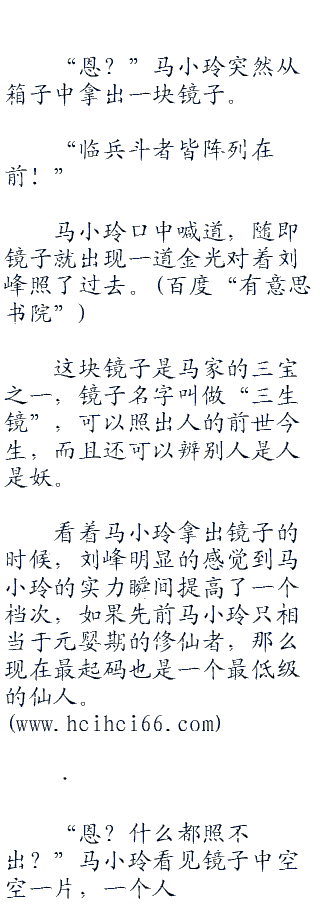 “恩？”马小玲突然从
箱子中拿出一块镜子。
“临兵斗者皆阵列在
前！”
马小玲口中喊道，随即
镜子就出现一道金光对着刘
峰照了过去。(百度“有意思
书院”)
这块镜子是马家的三宝
之一，镜子名字叫做“三生
镜”，可以照出人的前世今
生，而且还可以辨别人是人
是妖。
看着马小玲拿出镜子的
时候，刘峰明显的感觉到马
小玲的实力瞬间提高了一个
档次，如果先前马小玲只相
当于元婴期的修仙者，那么
现在最起码也是一个最低级
的仙人。
(www.hcihci66.com)
.
“恩？什么都照不
出？”马小玲看见镜子中空
空一片，一个人